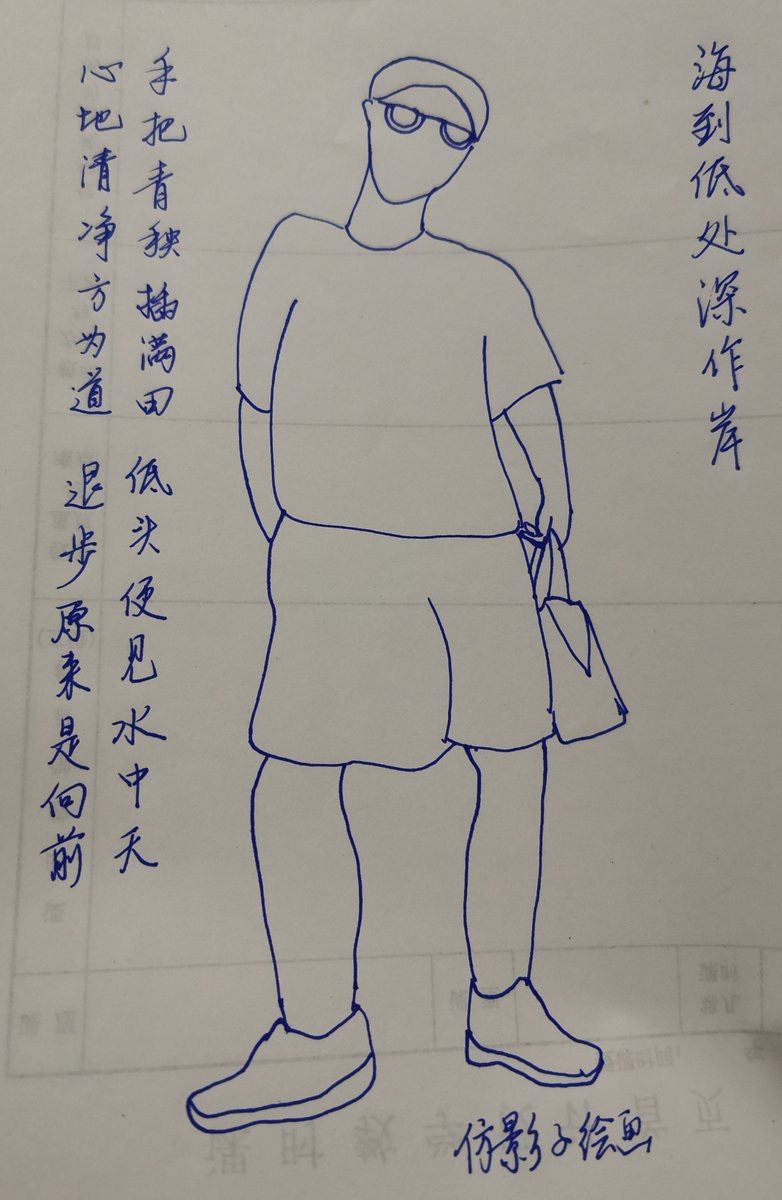 海到低处深作岸
手把青秧插满田 低头便见水中天
心地清净方为道 退步原来是向前
仿影子绘画